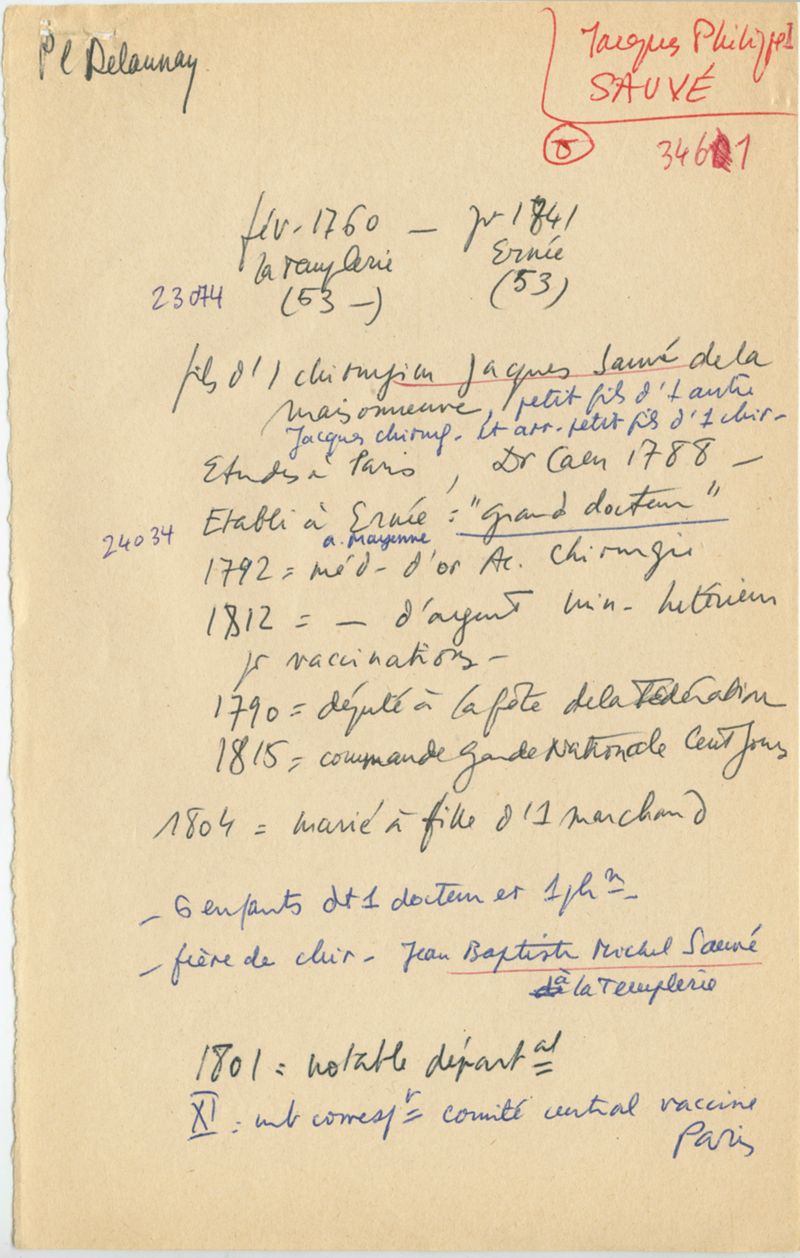 Pl Delaunay
Jacques Philippe
SAUVÉ
34601
fév. 1760 — jr 1841
la Templerie Ernée
23074 (53 —) (53)
fils d'1 chirurgien Jacques Sauvé de la
maisonneuve, petit fils d'1 autre
Jacques chirurg. et arr. petit fils d'1 chir.
Etudes à Paris, Dr Caen 1788 —
24034 Etabli à Ernée = "grand docteur"
a. mayenne
1792 = méd. d'or Ac. Chirurgie
1812 = — d'argent Min. Intérieur
pr vaccinations —
1790 = député à la fête de la Fédération
1815 = commande garde Nationale Cent Jours
1804 = marié à fille d'1 marchand
— 6 enfants dt 1 docteur et 1 phn —
— frère de chir. Jean Baptiste Michel Sauvé
à la Templerie
1801 = notable départal
XI = mb correspt comité central vaccine
Paris